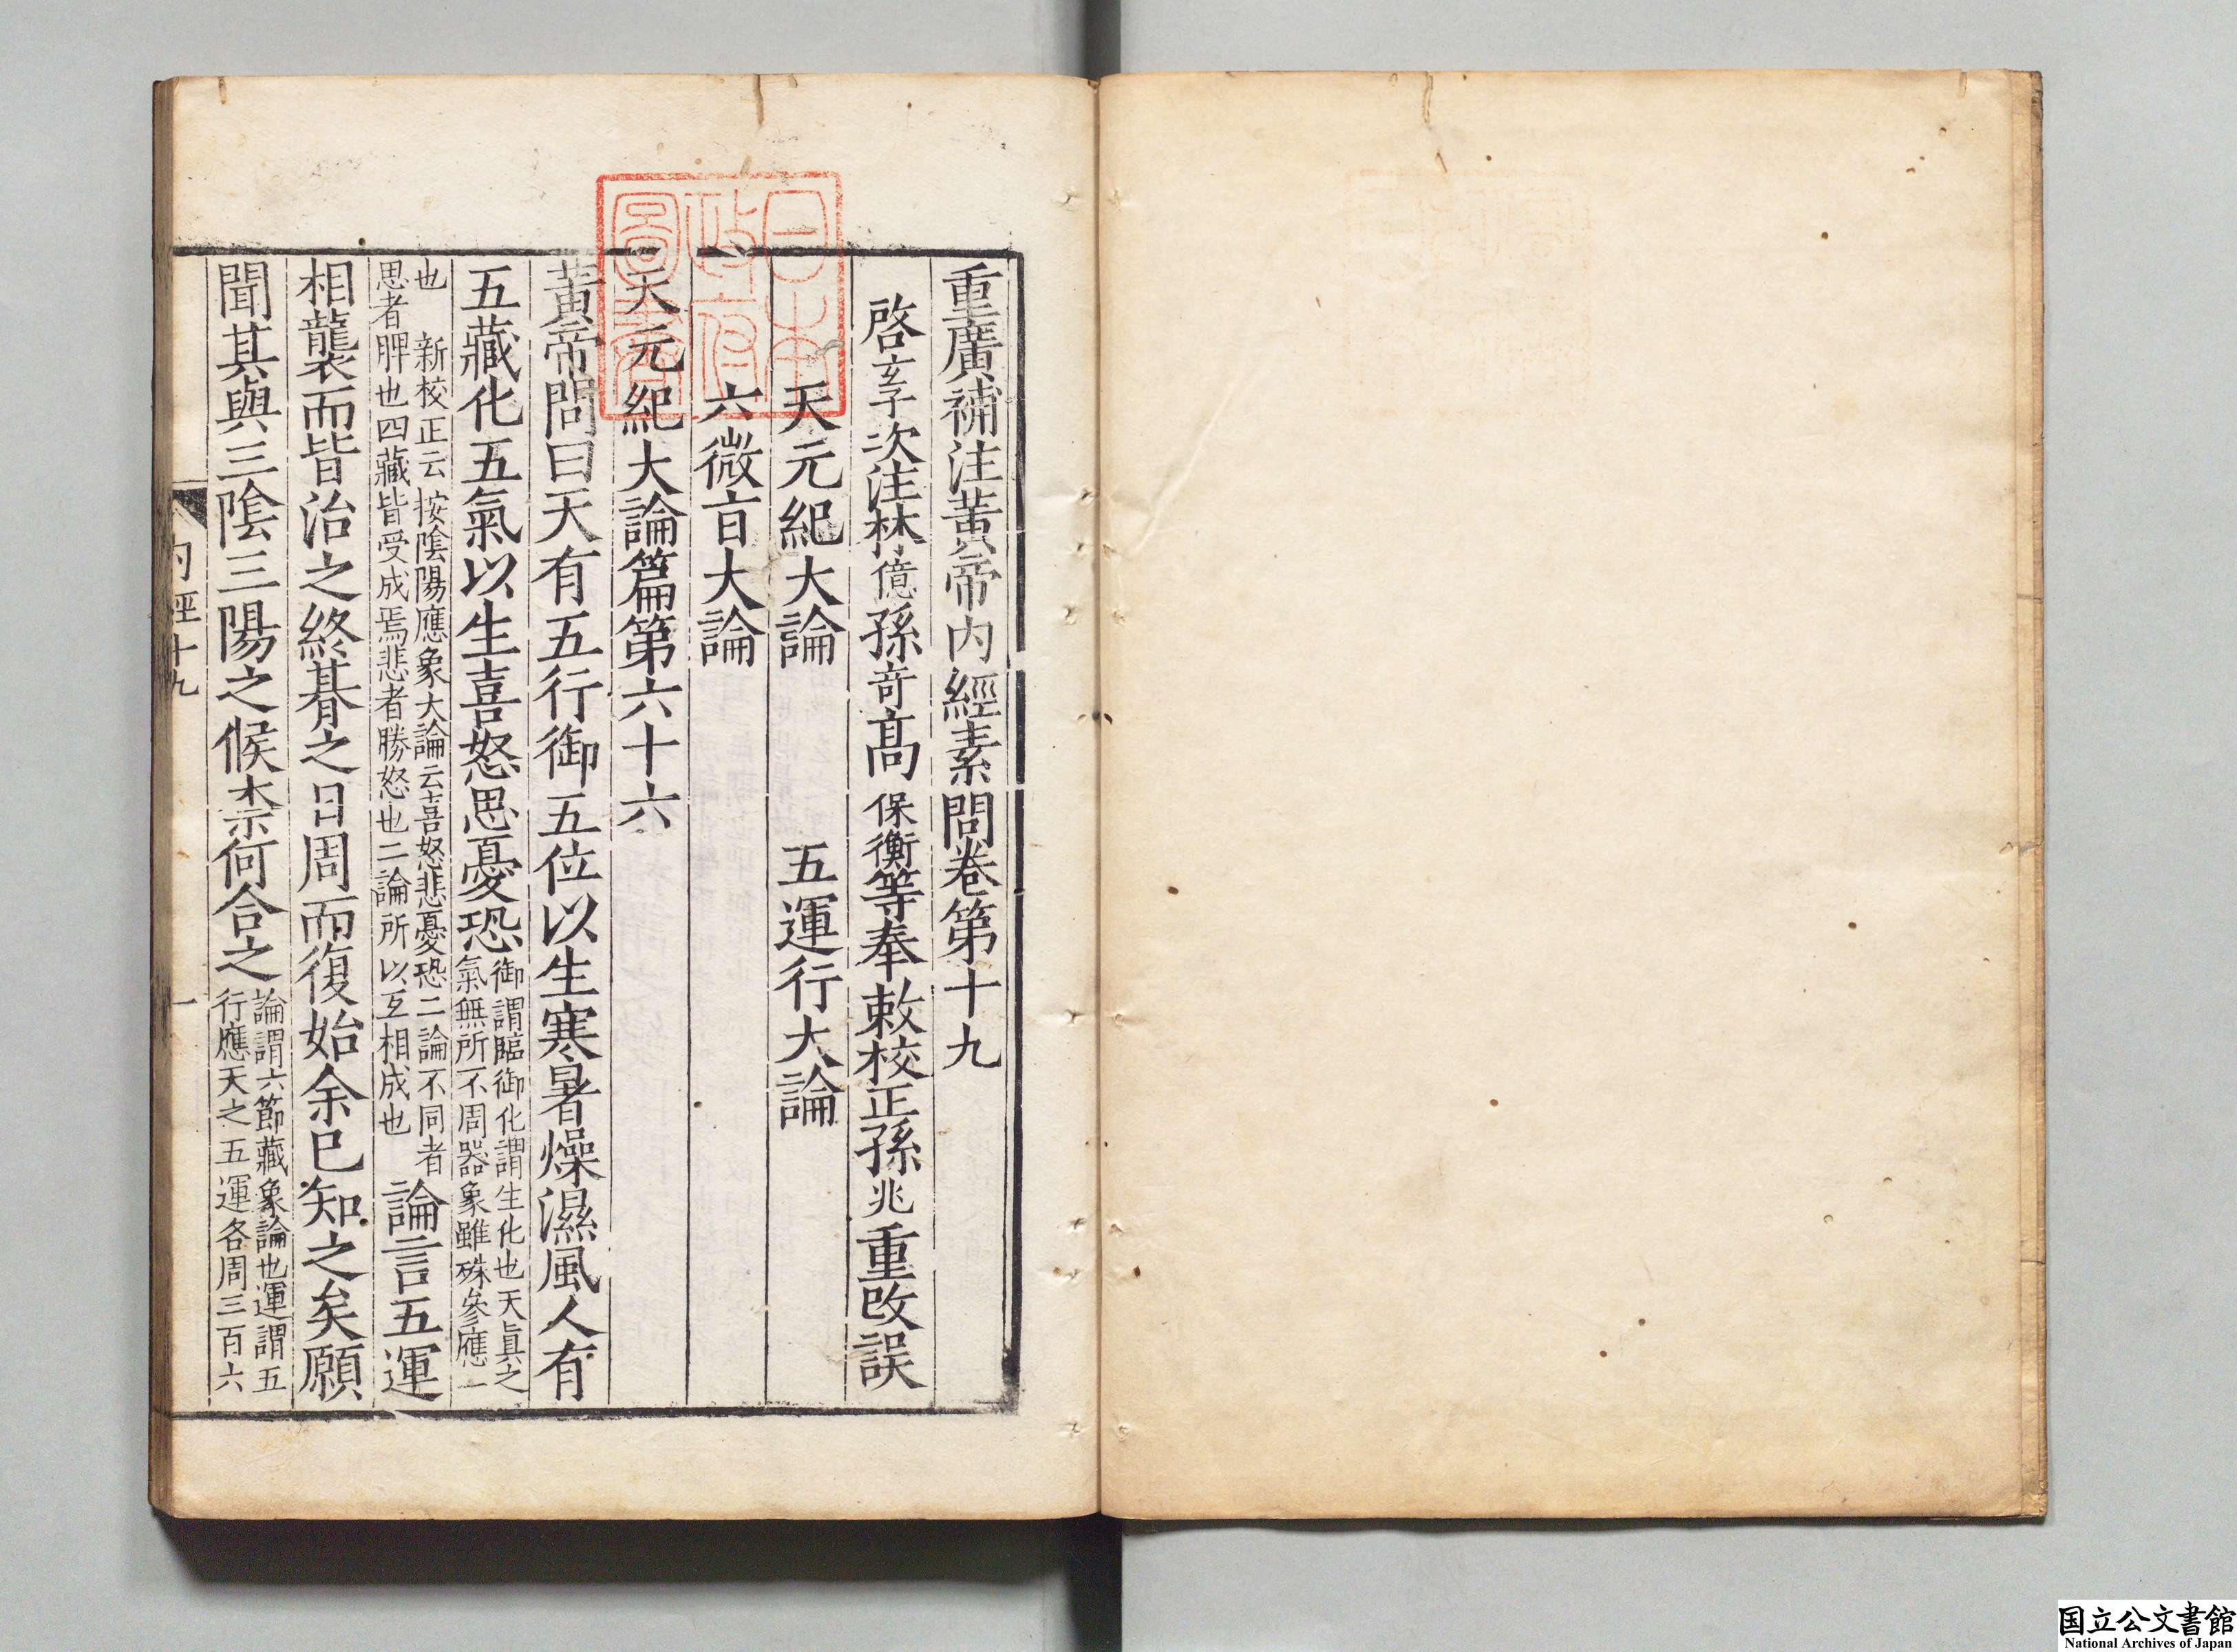 重廣補注黃帝内經素問卷第十九
啓玄子次注林億孫竒高保衡等奉敕校正孫兆重改誤
天元紀大論　五運行大論
六微旨大論
天元紀大論篇第六十六
黃帝問曰天有五行御五位以生寒暑燥濕風人有
五藏化五氣以生喜怒思憂恐
御謂臨御化謂生化也天眞之
氣無所不周器象雖殊參應一
也　新校正云按陰陽應象大論云喜怒悲憂恐二論不同者
思者脾也四藏皆受成焉悲者勝怒也二論所以互相成也
論言五運
相襲而皆治之終朞之日周而復始余已知之矣願
聞其與三陰三陽之候柰何合之
論謂六節藏象論也運謂五
行應天之五運各周三百六
内經十九
一
日本
政府
圖書
国立公文書館
National Archives of Japan